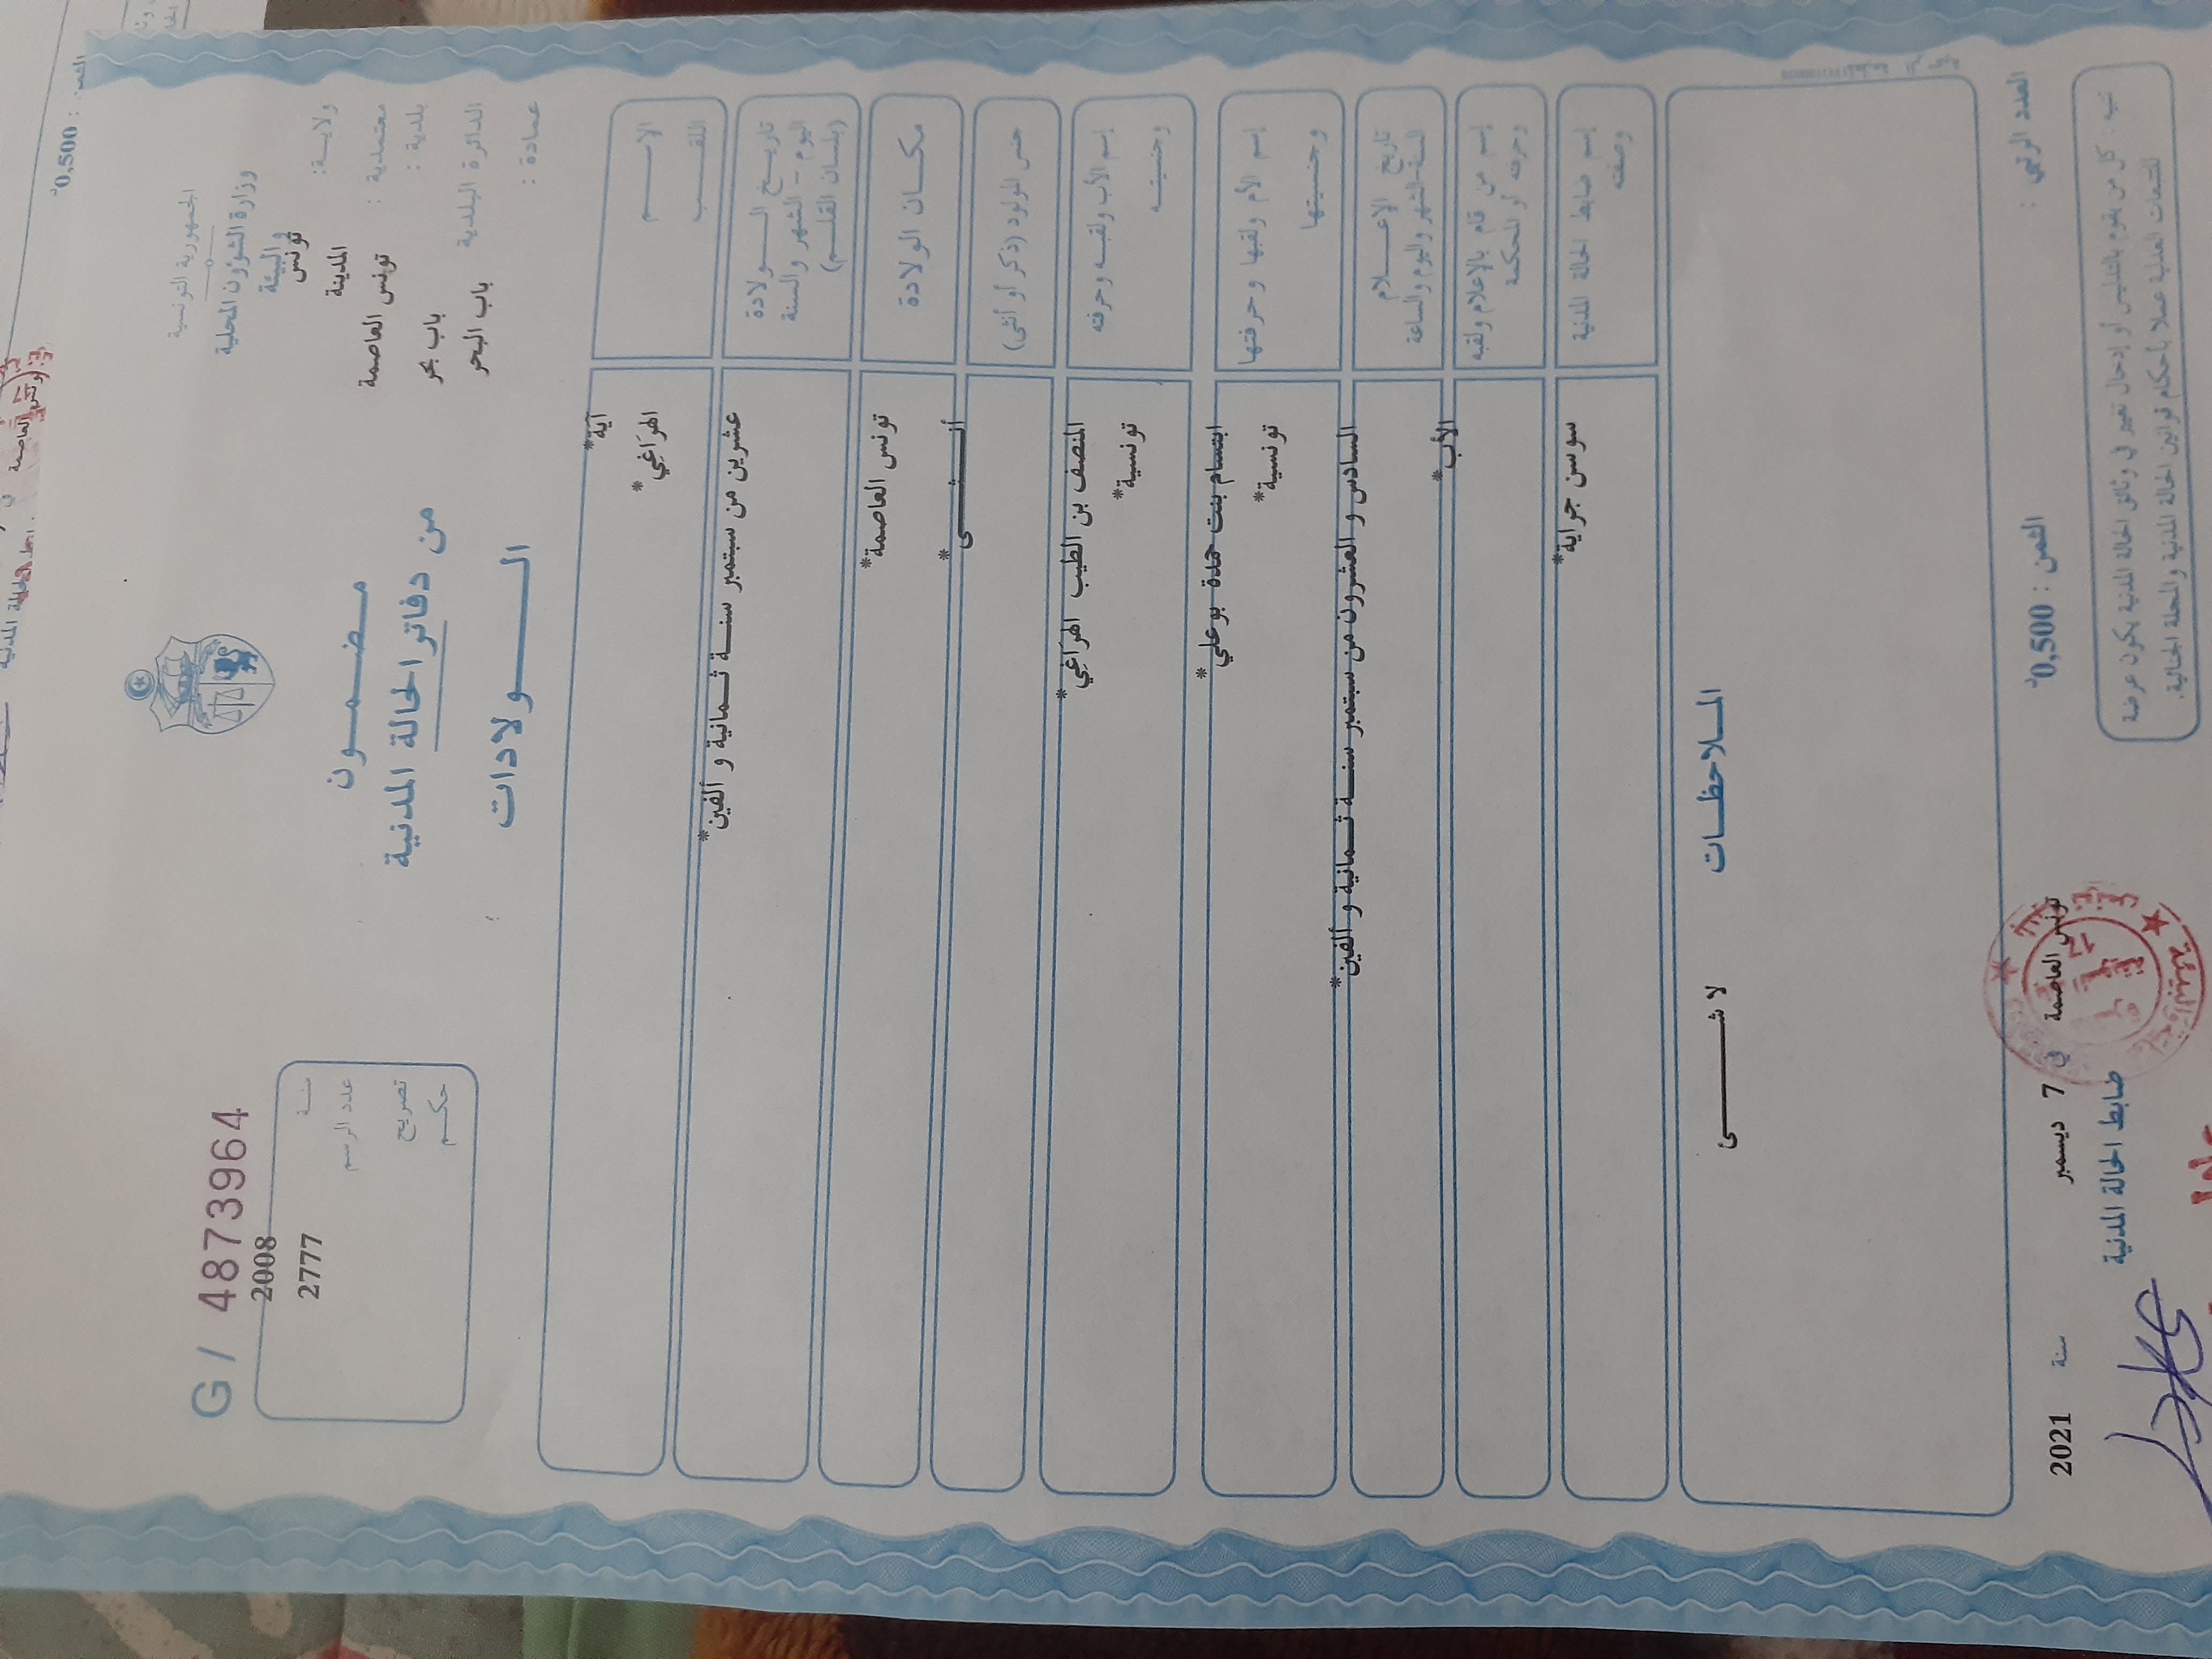 الثمن : 0,500د
الجمهورية التونسية
وزارة الشؤون المحلية
و البيئة
ولايــة: تونس
معتمدية : المدينة
بلدية : تونس العاصمة
الدائرة البلدية باب بحر
عمادة : باب البحر
مـضـمـــون
من دفاتر الحالة المدنية
الـــــولادات
G / 4873964
سنـة 2008
عدد الرسم 2777
تصريح
حكـم
الاســـم آية*
اللقـــب الهراغي*
تاريــخ الـــولادة
اليوم - الشهر والسنة
(بلسان القلــم)
عشرين من سبتمبر سنــة ثــمانية و ألفين*
مكــان الولادة تونس العاصمة*
جنس المولود (ذكر أو أنثى) أنــــثــــى*
إسم الأب ولقبــه وحرفته المنصف بن الطيب الهراغي*
وجنسيتــه تونسية*
إسم الأم ولقبها وحرفتها ابتسام بنت حمدة بوعلي*
وجنسيتها تونسية*
تاريخ الإعـــلام
السنة-الشهر واليوم والساعة
السادس و العشرون من سبتمبر سنــة ثــمانية و ألفين*
إسم من قام بالإعلام ولقبه
وحرفته أو المحكمة
الأب*
إسم ضابط الحالة المدنية
وصفته
سوسن جراية*
المـلاحظــات
لا شـــــــئ
العدد الرتبي :
الثمن : 0,500د
تونس العاصمة في 7 ديسمبر سنة 2021
ضابط الحالة المدنية
تنبيه : كل من يقوم بالتدليس أو إدخال تغيير في وثائق الحالة المدنية يكون عرضة
للتتبعات العدلية عملا بأحكام قوانين الحالة المدنية والمجلة الجنائية.